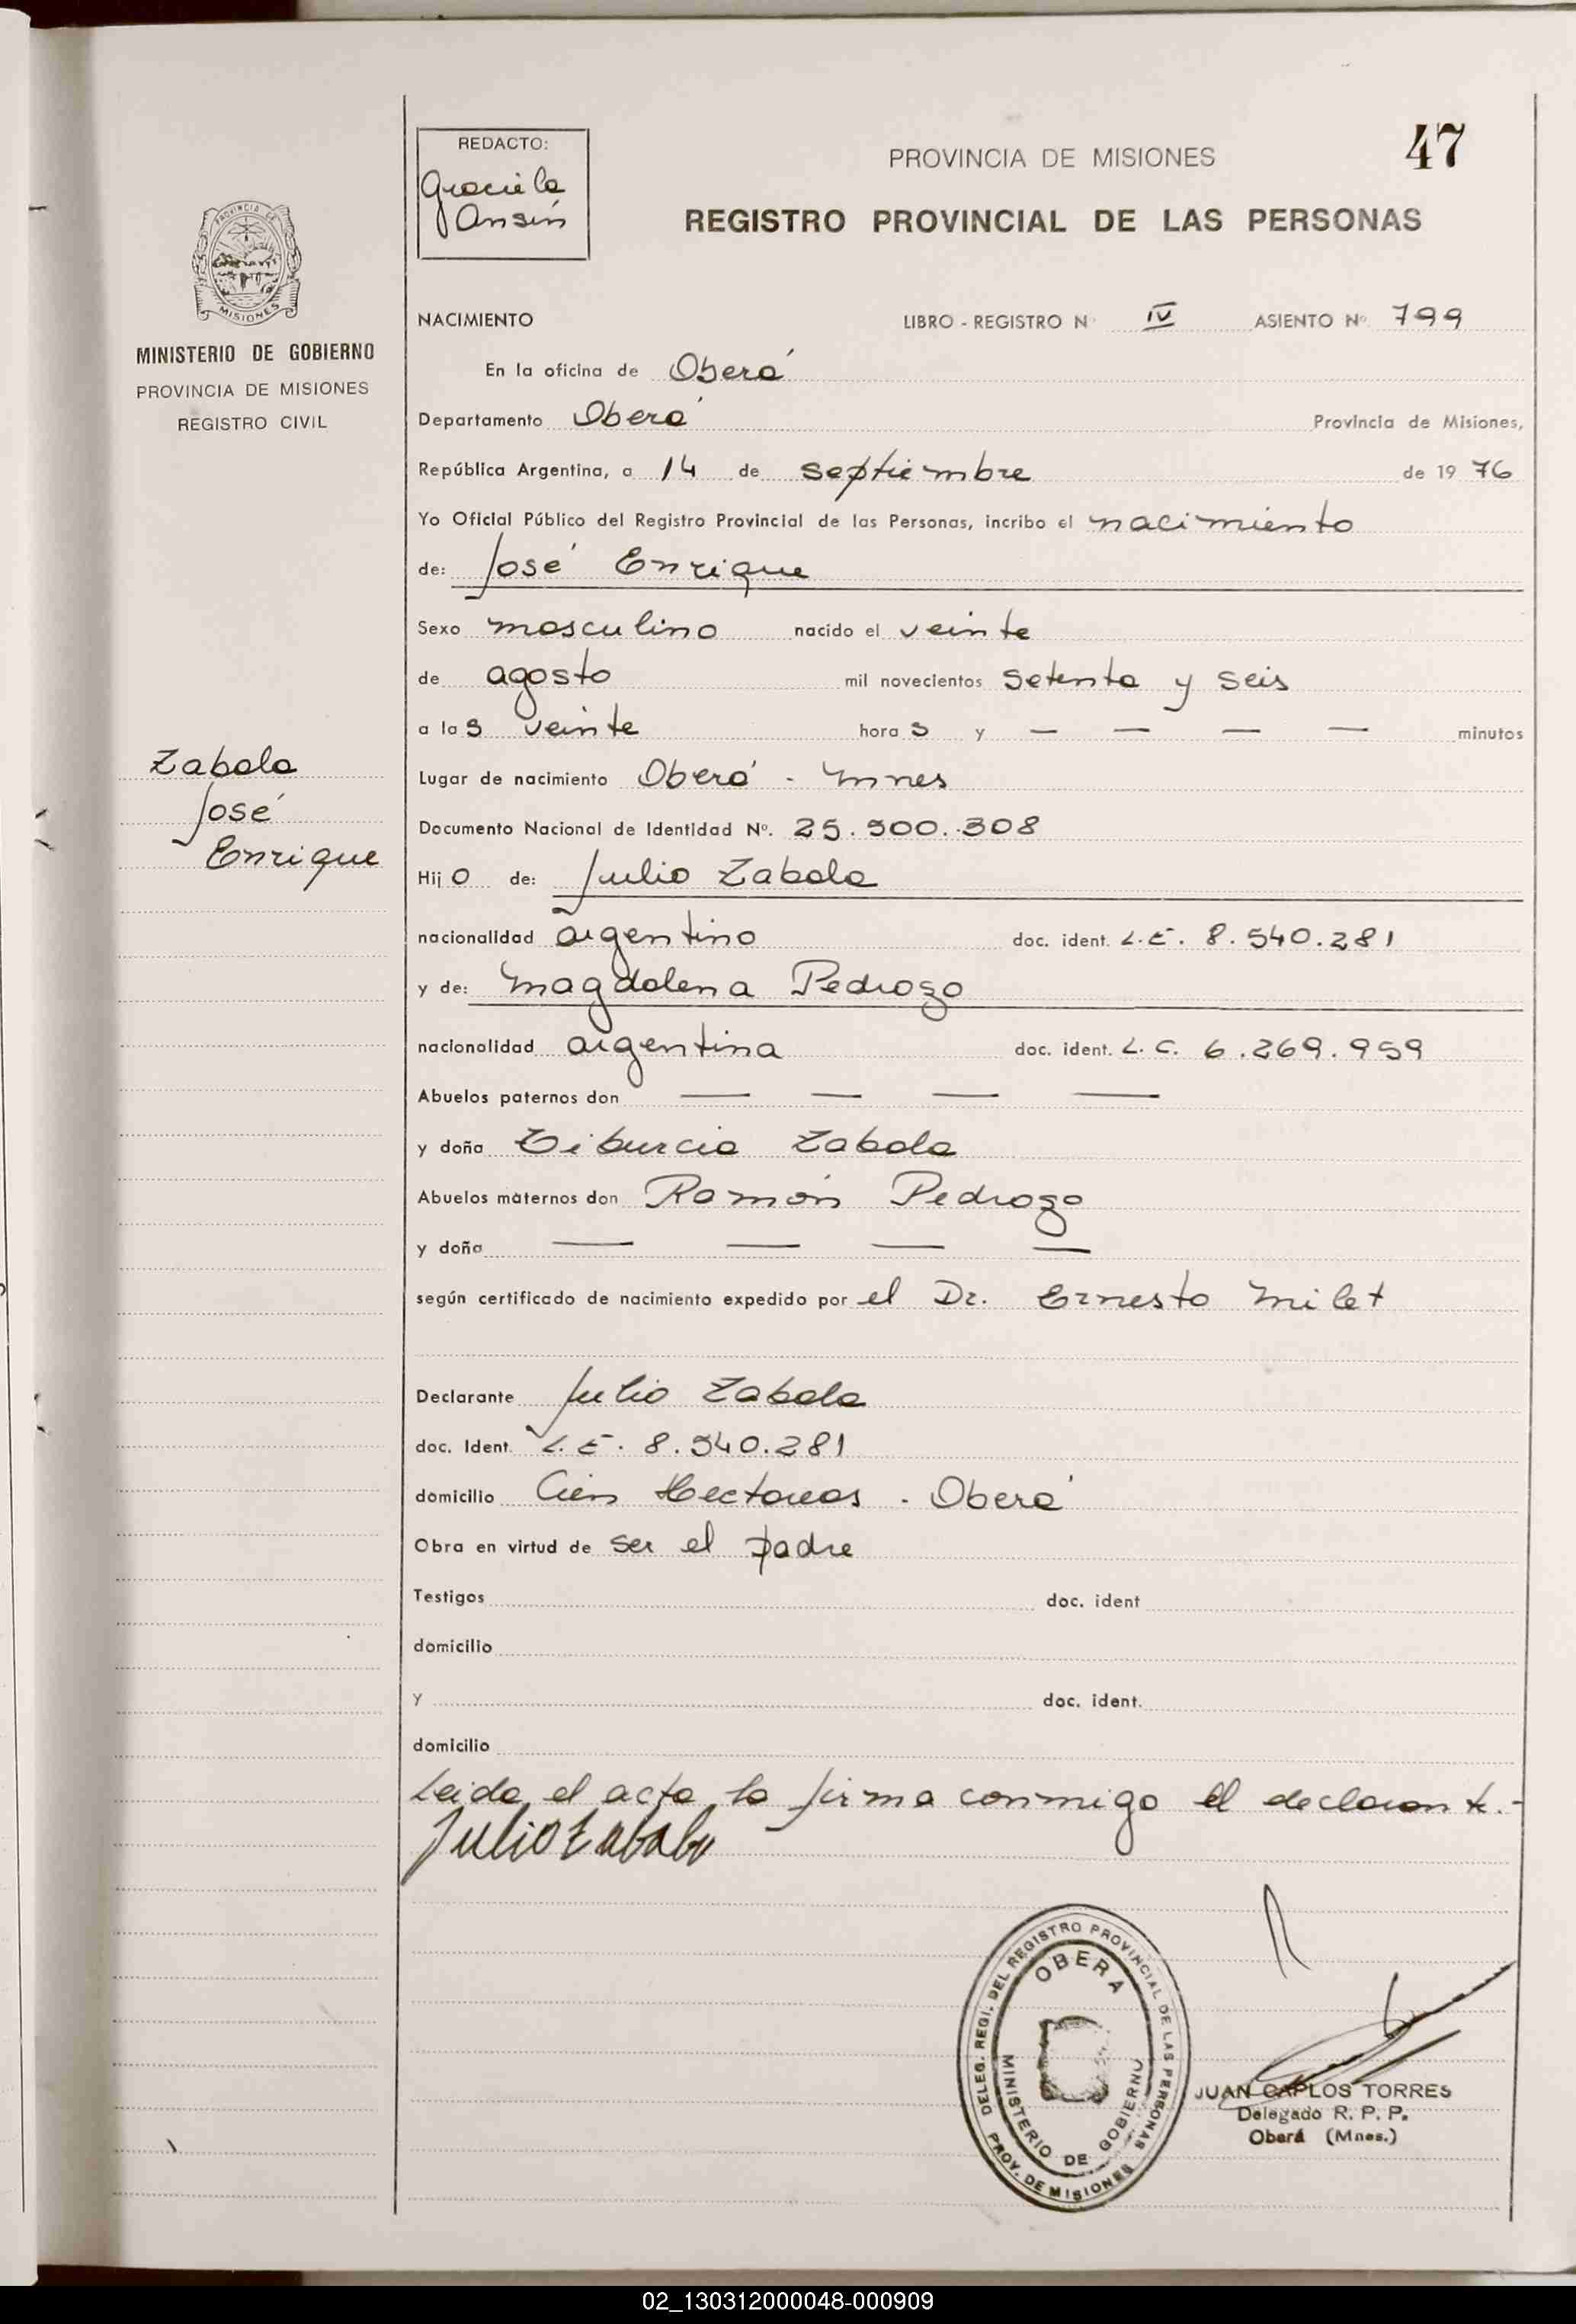 47
REDACTO:
Graciela
Ansín
PROVINCIA DE MISIONES
REGISTRO PROVINCIAL DE LAS PERSONAS
PROVINCIA DE
MISIONES
MINISTERIO DE GOBIERNO
PROVINCIA DE MISIONES
REGISTRO CIVIL
NACIMIENTO LIBRO - REGISTRO Nº IV ASIENTO Nº 799
En la oficina de Oberá
Departamento Oberá Provincia de Misiones,
República Argentina, a 14 de septiembre de 19 76
Yo Oficial Público del Registro Provincial de las Personas, incribo el nacimiento
de: José Enrique
Sexo masculino nacido el veinte
de agosto mil novecientos setenta y seis
a las veinte horas y — — — — minutos
Zabala
José
Enrique
Lugar de nacimiento Oberá - Mnes
Documento Nacional de Identidad Nº. 25.500.308
Hijo de: Julio Zabala
nacionalidad argentino doc. ident. L.E. 8.540.281
y de: Magdalena Pedrozo
nacionalidad argentina doc. ident. L.C. 6.269.959
Abuelos paternos don — — — —
y doña Tiburcia Zabala
Abuelos maternos don Ramón Pedrozo
y doña — — — —
según certificado de nacimiento expedido por el Dr. Ernesto Milet
Declarante Julio Zabala
doc. Ident. L.E. 8.540.281
domicilio Cien Hectareas - Oberá
Obra en virtud de ser el padre
Testigos doc. ident
domicilio
y doc. ident.
domicilio
Leida el acta la firma conmigo el declarante.-
Julio Zabala
DELEG. REGI. DEL REGISTRO PROVINCIAL DE LAS PERSONAS
OBERA
MINISTERIO DE GOBIERNO
PROV. DE MISIONES
JUAN CARLOS TORRES
Delegado R. P. P.
Oberá (Mnes.)
02_130312000048-000909